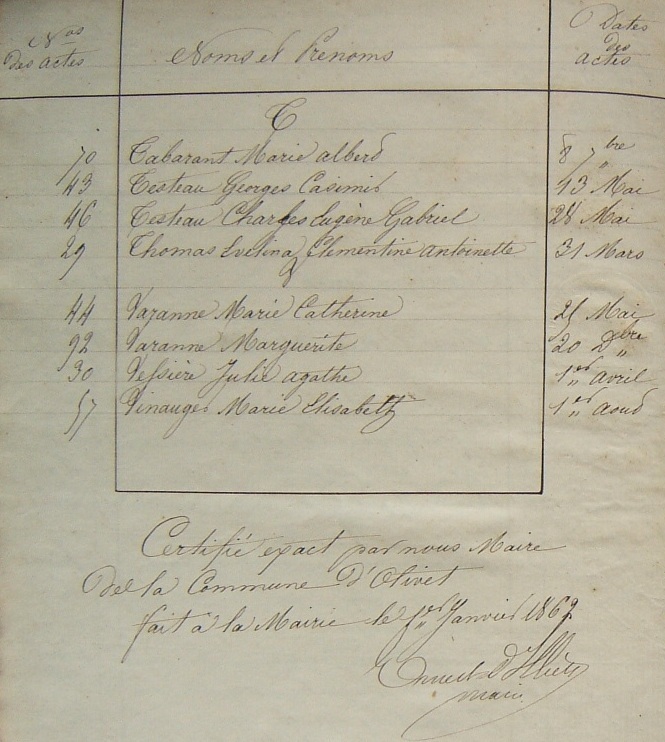 Nos des actes Noms et Prénoms Dates des actes
T
70 Tabarant Marie albert 8 7bre
43 Testeau Georges Casimir 13 Mai
46 Testeau Charles Eugène Gabriel 28 Mai
29 Thomas Evelina Clémentine Antoinette 31 Mars
V
44 Vazanne Marie Catherine 25 Mai
92 Varanne Marguerite 20 Xbre
30 Vessière Julie agathe 1er avril
57 Vinauger Marie Elisabeth 1er aout
Certifié exact par nous Maire
De la Commune d'Olivet
fait à la Mairie le 1er Janvier 1862
d'Illiers
maire